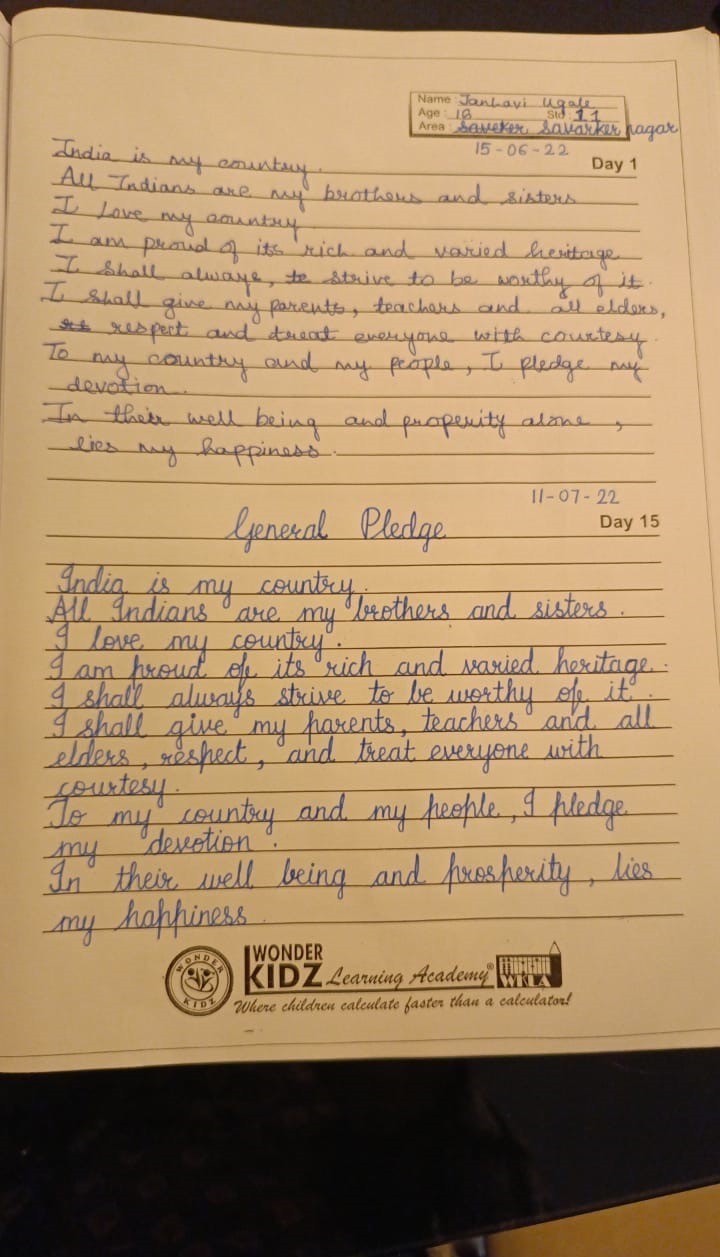 Name : Janhavi Ugale
Age : 16 Std : 11
Area : Saveker Savarker nagar
15-06-22
Day 1
India is my country.
All Indians are my brothers and sisters
I Love my country.
I am proud of its rich and varied heritage
I Shall always, to strive to be worthy of it.
I Shall give my parents, teachers and all elders,
respect and treat everyone with courtesy.
To my country and my people, I pledge my
devotion.
In their well being and properity alone ,
lies my happiness.
11-07-22
Day 15
General Pledge
India is my country.
All Indians are my brothers and sisters.
I love my country.
I am proud of its rich and varied heritage.
I shall always strive to be worthy of it.
I shall give my parents, teachers and all
elders, respect, and treat everyone with
courtesy.
To my country and my people, I pledge
my devotion.
In their well being and prosperity, lies
my happiness.
WONDER KIDZ
WONDER
KIDZ Learning Academy®
WKLA
Where children calculate faster than a calculator!